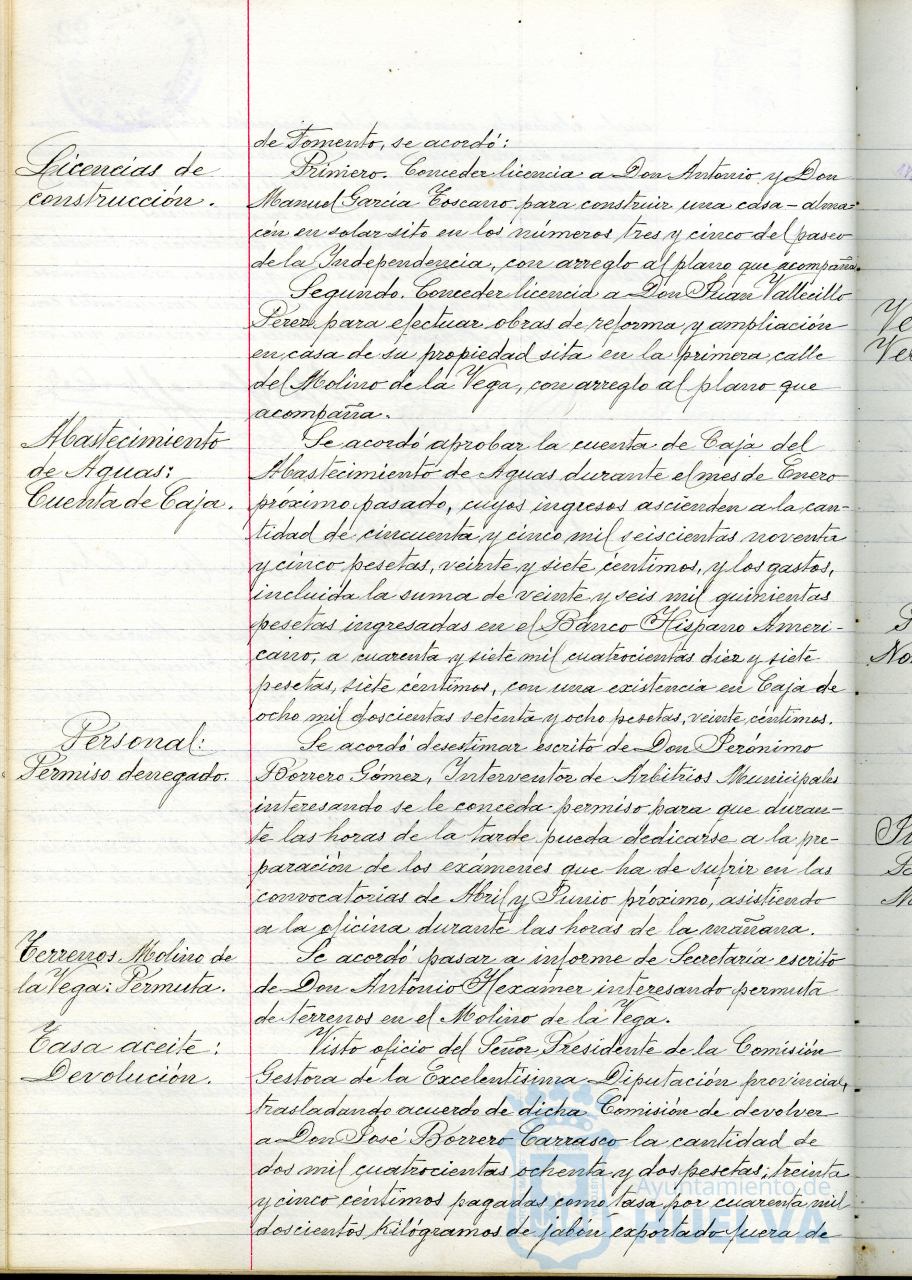 de Fomento, se acordó:
Licencias de
construcción.
Primero. Conceder licencia a Don Antonio y Don
Manuel García Toscano para construir una casa-alma-
cén en solar sito en los números tres y cinco del paseo
de la Independencia, con arreglo al plano que acompaña.
Segundo. Conceder licencia a Don Juan Vallecillo
Pérez para efectuar obras de reforma y ampliación
en casa de su propiedad sita en la primera calle
del Molino de la Vega, con arreglo al plano que
acompaña.
Abastecimiento
de Aguas:
Cuenta de Caja.
Se acordó aprobar la cuenta de Caja del
Abastecimiento de Aguas durante el mes de Enero
próximo pasado, cuyos ingresos ascienden a la can-
tidad de cincuenta y cinco mil seiscientas noventa
y cinco pesetas, veinte y siete céntimos, y los gastos,
incluida la suma de veinte y seis mil quinientas
pesetas ingresadas en el Banco Hispano Ameri-
cano, a cuarenta y siete mil cuatrocientas diez y siete
pesetas, siete céntimos, con una existencia en Caja de
ocho mil doscientas setenta y ocho pesetas, veinte céntimos.
Personal:
Permiso denegado.
Se acordó desestimar escrito de Don Jerónimo
Borrero Gómez, Interventor de Arbitrios Municipales
interesando se le conceda permiso para que duran-
te las horas de la tarde pueda dedicarse a la pre-
paración de los exámenes que ha de sufrir en las
convocatorias de Abril y Junio próximo, asistiendo
a la oficina durante las horas de la mañana.
Terrenos Molino de
la Vega: Permuta.
Se acordó pasar a informe de Secretaría escrito
de Don Antonio Hexamer interesando permuta
de terrenos en el Molino de la Vega.
Tasa aceite:
Devolución.
Visto oficio del Señor Presidente de la Comisión
Gestora de la Excelentísima Diputación provincial,
trasladando acuerdo de dicha Comisión de devolver
a Don José Borrero Carrasco la cantidad de
dos mil cuatrocientas ochenta y dos pesetas, treinta
y cinco céntimos pagadas como tasa por cuarenta mil
doscientos kilógramos de jabón exportado fuera de
Ayuntamiento de
HUELVA